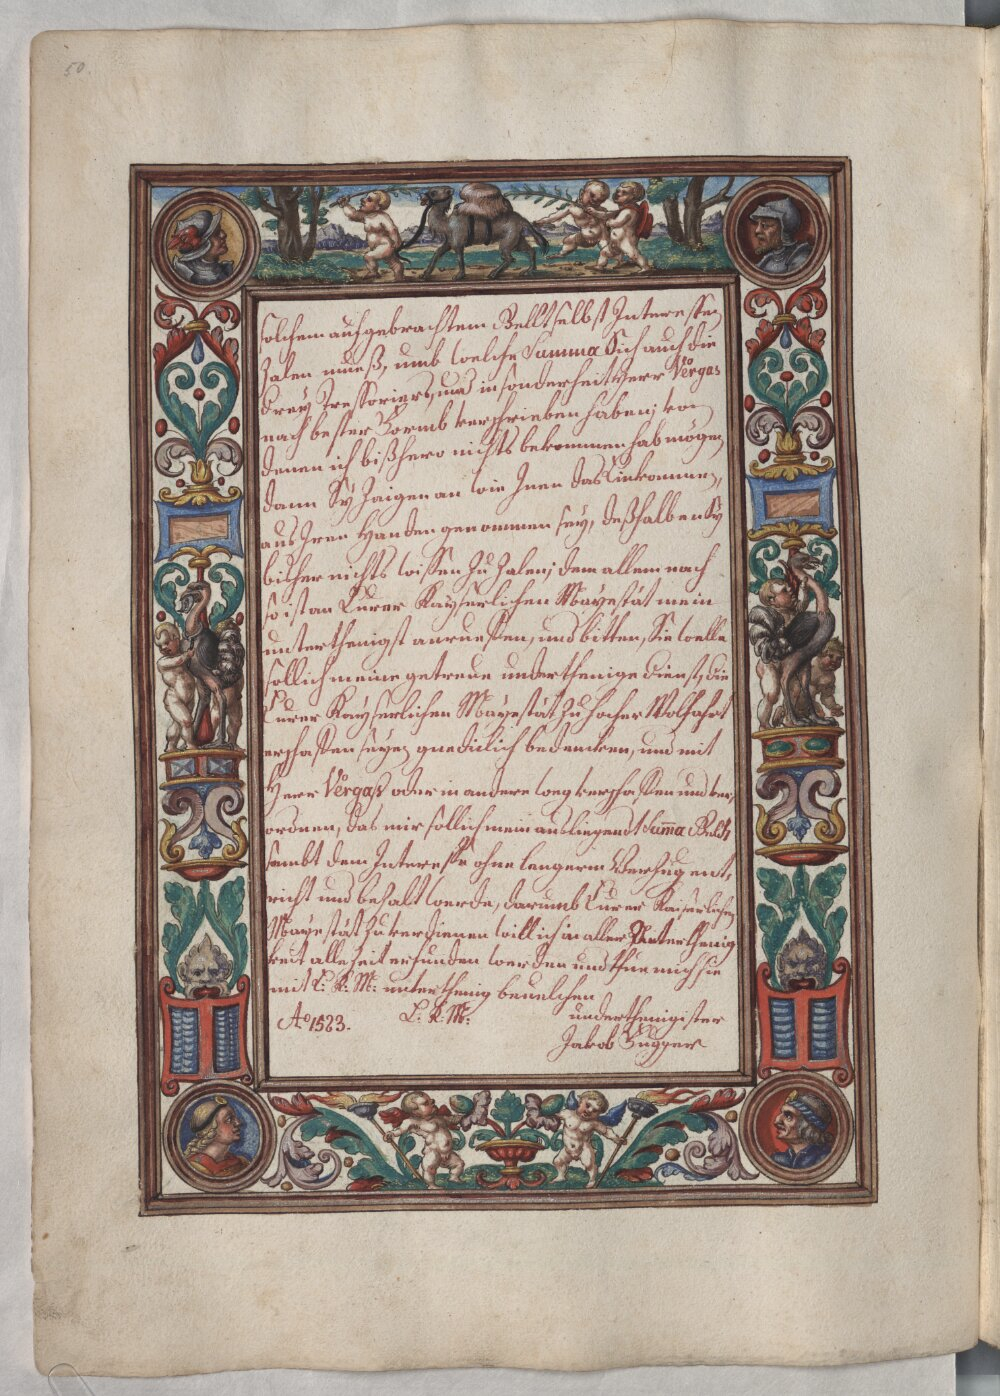 50.
solchem aufgebrachtem Gellt selbst Interesse
zalen mueß, umb welche Summa Sich auch die
drey Tressoriers, und insonderheit Herr Vörgas
nach bester Formb verschrieben haben; von
denen ich bißhero nichts bekommen hab mögen,
dann Sy zaigen an wie Inen das Einkommen,
aus Iren Handen genommen sey, deßhalben Sy
bisher nichts wissen zu zalen; dem allem nach
so ist an Eurer Kayserlichen Mayestät mein
unterthenigst anrueffen, und bitten, Sie welle
sollich meine getreue underthenige dienst, die
Eurer Kayserlichen Mayestät zu hocher Wolfahrt
erschossen seyen, gnediclich bedencken, und mit
Herr Vörgas oder in andere weg verschaffen und ver,
ordnen, das mir sollich mein ausligendt Summa Geldts
sambt dem Interesse ohne lengern Verzug ent,
richt und bezalt werde, darumb Eurer Kaiserlichen
Mayestät zu verdienen will ich in aller Unterthenig
keit alle zeit erfunden werden und thue mich hie
mit E: K: M: unterthenig bevelchen
Aº 1523. E: K: M: underthenigister
Jakob Fugger